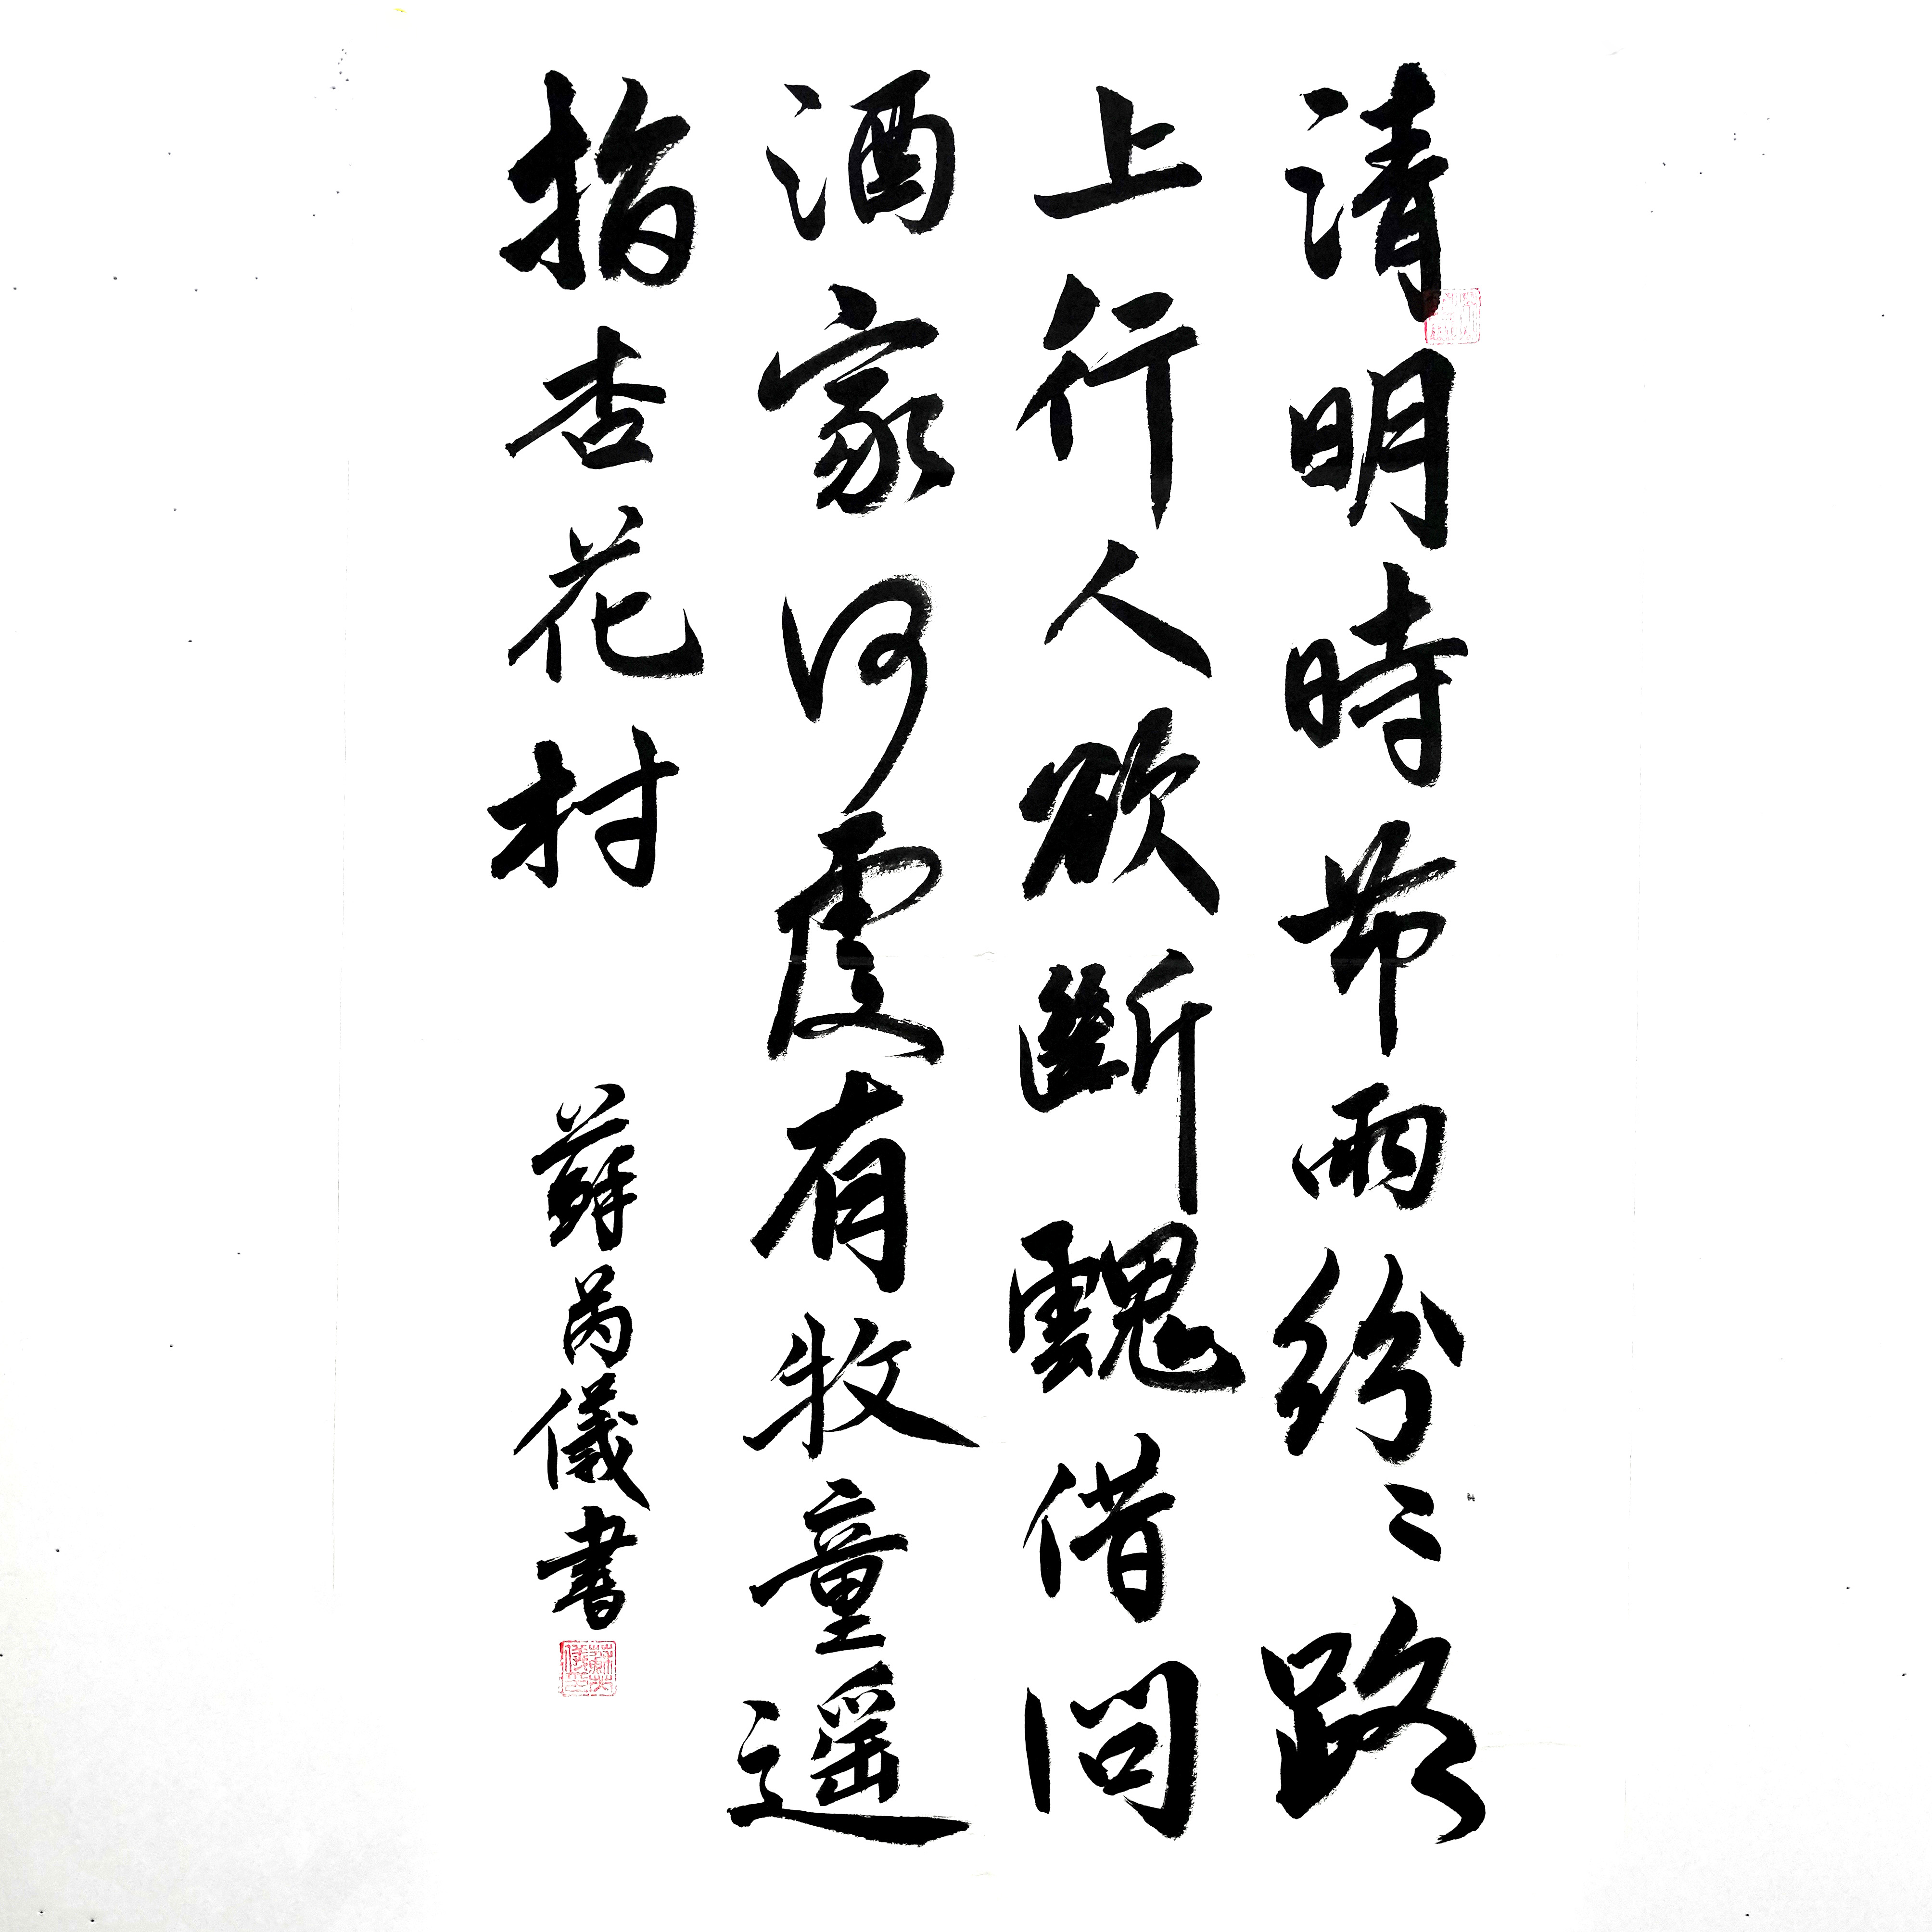 清明時節雨紛〻路
上行人欲斷魂借問
酒家何處有牧童遥
指杏花村 蘇芮儀書